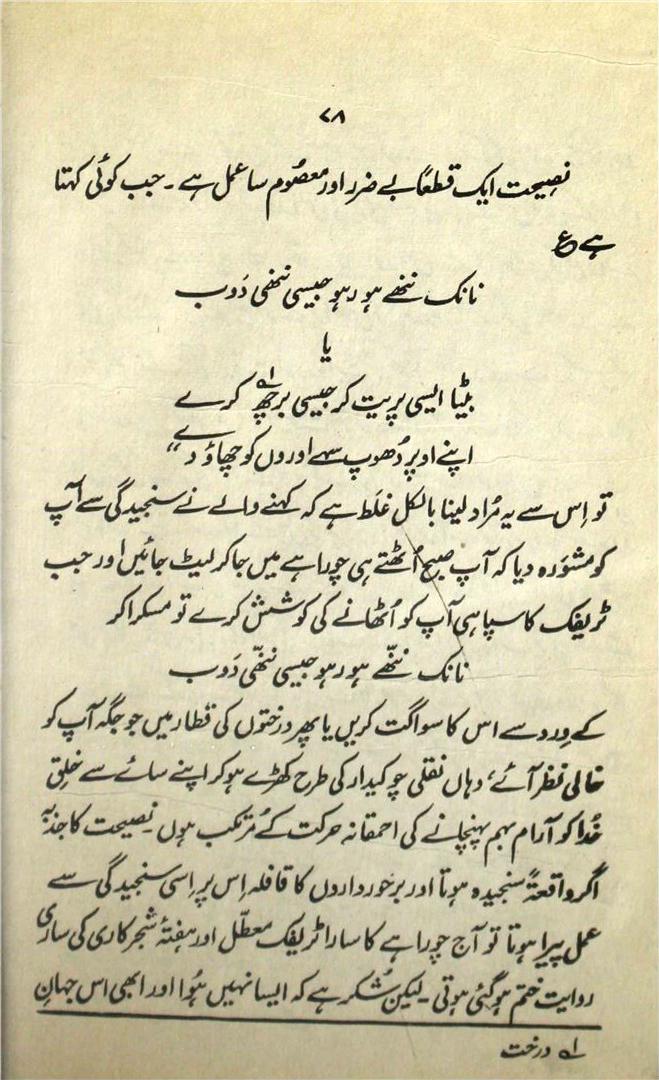 ۷۸
نصیحت ایک قطعاً بے ضرر اور معصُوم سا عمل ہے ۔ جب کوئی کہتا
ہے ؏
نانک ننھے ہو رہو جیسی ننھی دَوب
یا
بیٹا ایسی پریت کر جیسی برچھ ۱ے کرے
اپنے اوپر دُھوپ سہے اوروں کو چھاؤ دے“
تو اِس سے یہ مُراد لینا بالکل غلَط ہے کہ کہنے والے نے سنجیدگی سے آپ
کو مشوَرہ دیا کہ آپ صبح اُٹھتے ہی چوراہے میں جا کر لیٹ جائیں اور جب
ٹریفک کا سپاہی آپ کو اُٹھانے کی کوشش کرے تو مسکرا کر
نانک ننّھے ہو رہو جیسی ننھّی دَوب
کے وِرد سے اس کا سواگت کریں یا پھر درختوں کی قطار میں جو جگہ آپ کو
خالی نظر آئے، وہاں نقلی چوکیدار کی طرح کھڑے ہو کر اپنے سائے سے خلقِ
خُدا کو آرام بہم پہنچانے کی احمقانہ حرکت کے مُرتکب ہوں ۔ نصیحت کا جذبہ
اگر واقعتہً سنجیدہ ہوتا اور برخورداروں کا قافلہ اِس پر اِسی سنجیدگی سے
عمل پیرا ہوتا تو آج چوراہے کا سارا ٹریفک معطّل اور ہفتۂ شجر کاری کی ساری
روایت ختم ہو گئی ہوتی ۔ لیکن شُکر ہے کہ ایسا نہیں ہُوا اور ابھی اس جہانِ
۱ے درخت